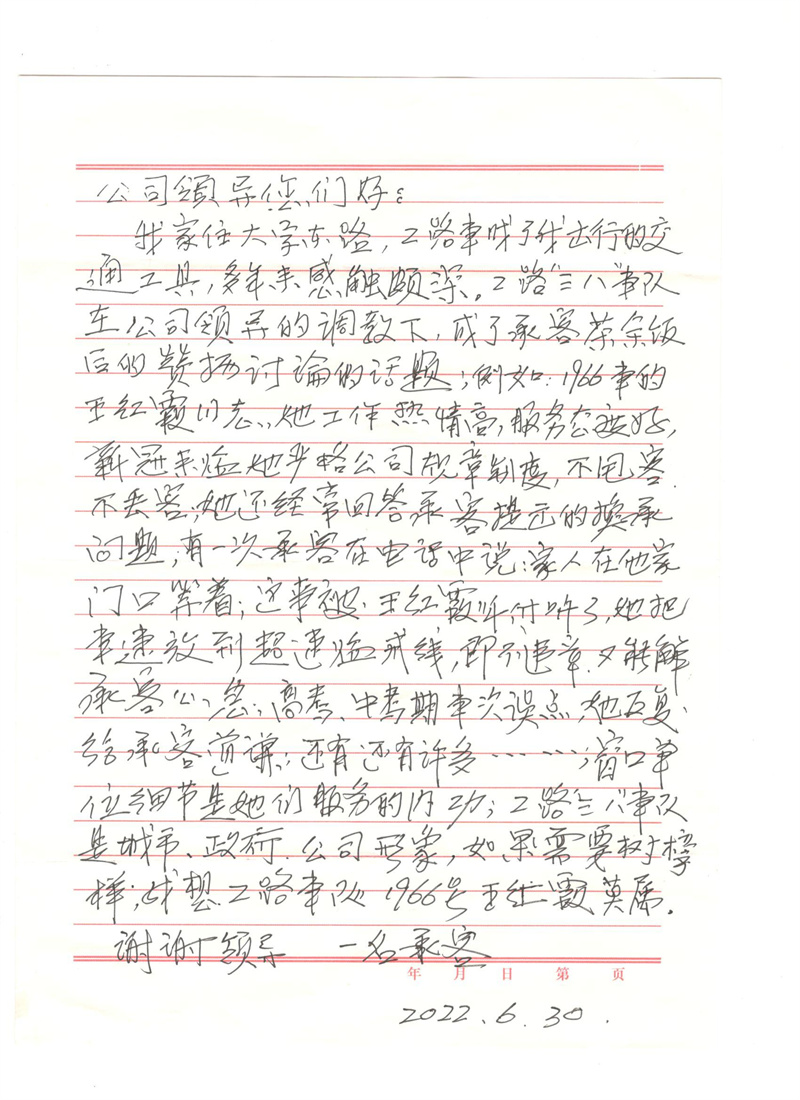 公司领导您们好：
我家住大学东路，2路车成了我出行的交
通工具，多年来感触颇深。2路"三八"车队
在公司领导的调教下，成了承客茶余饭
后的赞扬讨论的话题；例如：1966车的
王红霞同志，她工作热情高，服务态度好，
新冠来临她严格公司规章制度，不甩客
不丢客；她还经常回答承客提示的换承
问题；有一次承客在电话中说：家人在他家
门口等着；这事被王红霞听了，她把
车速放到超速临戒线，即不违章又能解
承客心急；高考、中考期车次误点，她反复
给承客道谦；还有还有许多……；窗口单
位细节是她们服务的内功；2路"三八"车队
是城市、政府、公司形象，如果需要树榜
样；我想2路车队1966号王红霞莫属。
谢谢领导 一名承客
年 月 日 第 页
2022.6.30.